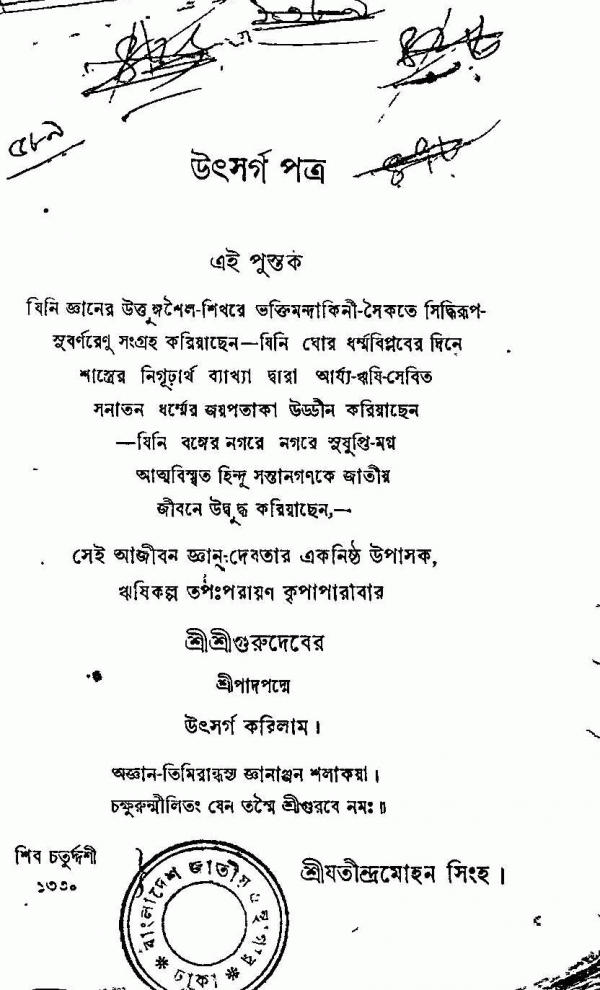 ৫৮৯
উৎসর্গ পত্র
এই পুস্তক
যিনি জ্ঞানের উত্তুঙ্গশৈল-শিখরে ভক্তিমন্দাকিনী-সৈকতে সিদ্ধিরূপ-
সুবর্ণরেণু সংগ্রহ করিয়াছেন—যিনি ঘোর ধর্ম্মবিপ্লবের দিনে
শাস্ত্রের নিগূঢ়ার্থ ব্যাখ্যা দ্বারা আর্য্য-ঋষি-সেবিত
সনাতন ধর্ম্মের জয়পতাকা উড্ডীন করিয়াছেন
—যিনি বঙ্গের নগরে নগরে সুষুপ্তি-মগ্ন
আত্মবিস্মৃত হিন্দু সন্তানগণকে জাতীয়
জীবনে উদ্বুদ্ধ করিয়াছেন,—
সেই আজীবন জ্ঞান-দেবতার একনিষ্ঠ উপাসক,
ঋষিকল্প তপঃপরায়ণ কৃপাপারাবার
শ্রীশ্রীগুরুদেবের
শ্রীপাদপদ্মে
উৎসর্গ করিলাম।
অজ্ঞান-তিমিরান্ধস্য জ্ঞানাঞ্জন শলাকয়া।
চক্ষুরুন্মীলিতং যেন তস্মৈ শ্রীগুরবে নমঃ॥
শিব চতুর্দ্দশী
১৩৩০
শ্রীযতীন্দ্রমোহন সিংহ।
বাংলাদেশ জাতীয় গ্রন্থাগার
* ঢাকা *